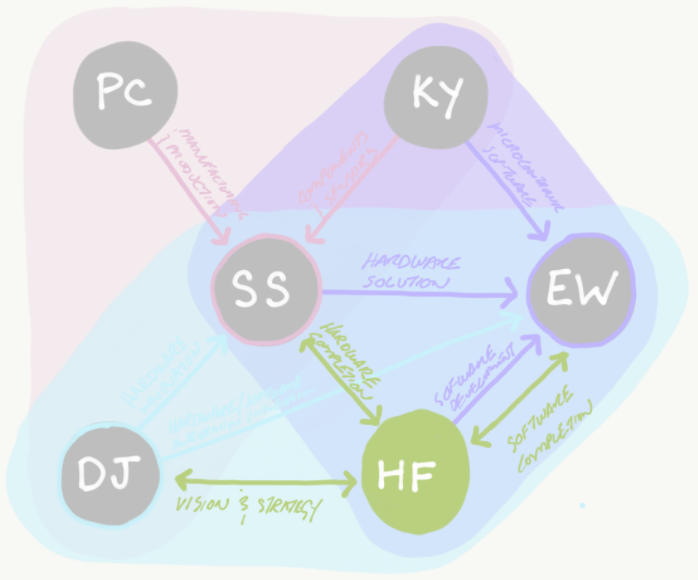 PC
KY
MANUFACTURING
& PRODUCTION
COMPONENTS
& SENSORS
MICROCONTROLLER
SOFTWARE
SS
HARDWARE
SOLUTION
EW
HARDWARE
COMPLETION
HARDWARE
SOFTWARE
DEVELOPMENT
SOFTWARE
COMPLETION
DJ
HF
VISION & STRATEGY